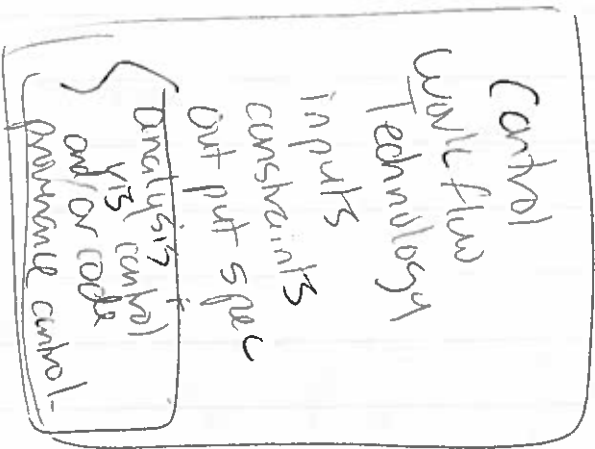 Control
Work flow
Technology
inputs
constraints
out put spec
analysis
vis control
and/or code
provenance control